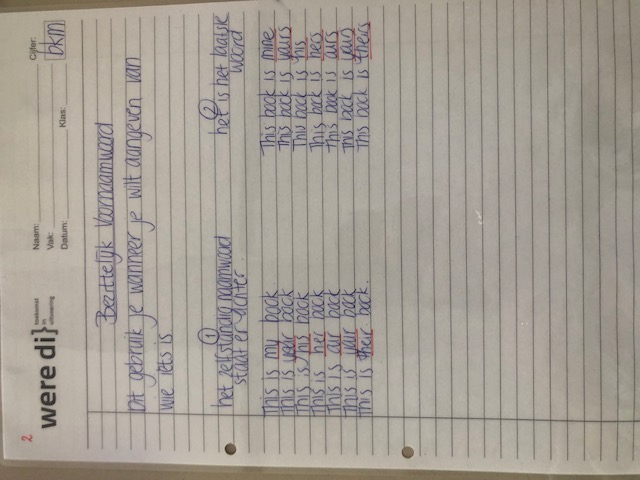 2
were di} toekomst in uitvoering
Naam:
Vak:
Datum:
Klas:
Cijfer:
bkm
Bezittelijk Voornaamwoord
Dit gebruik je wanneer je wilt aangeven van
wie iets is
①
het zelfstandig naamwoord
staat er achter.
This is my book
This is your book
This is his book
This is her book
This is our book
This is your book
This is their book.
②
het is het laatste
woord
This book is mine
This book is yours
This book is his
This book is hers
This book is ours
This book is yours
This book is theirs